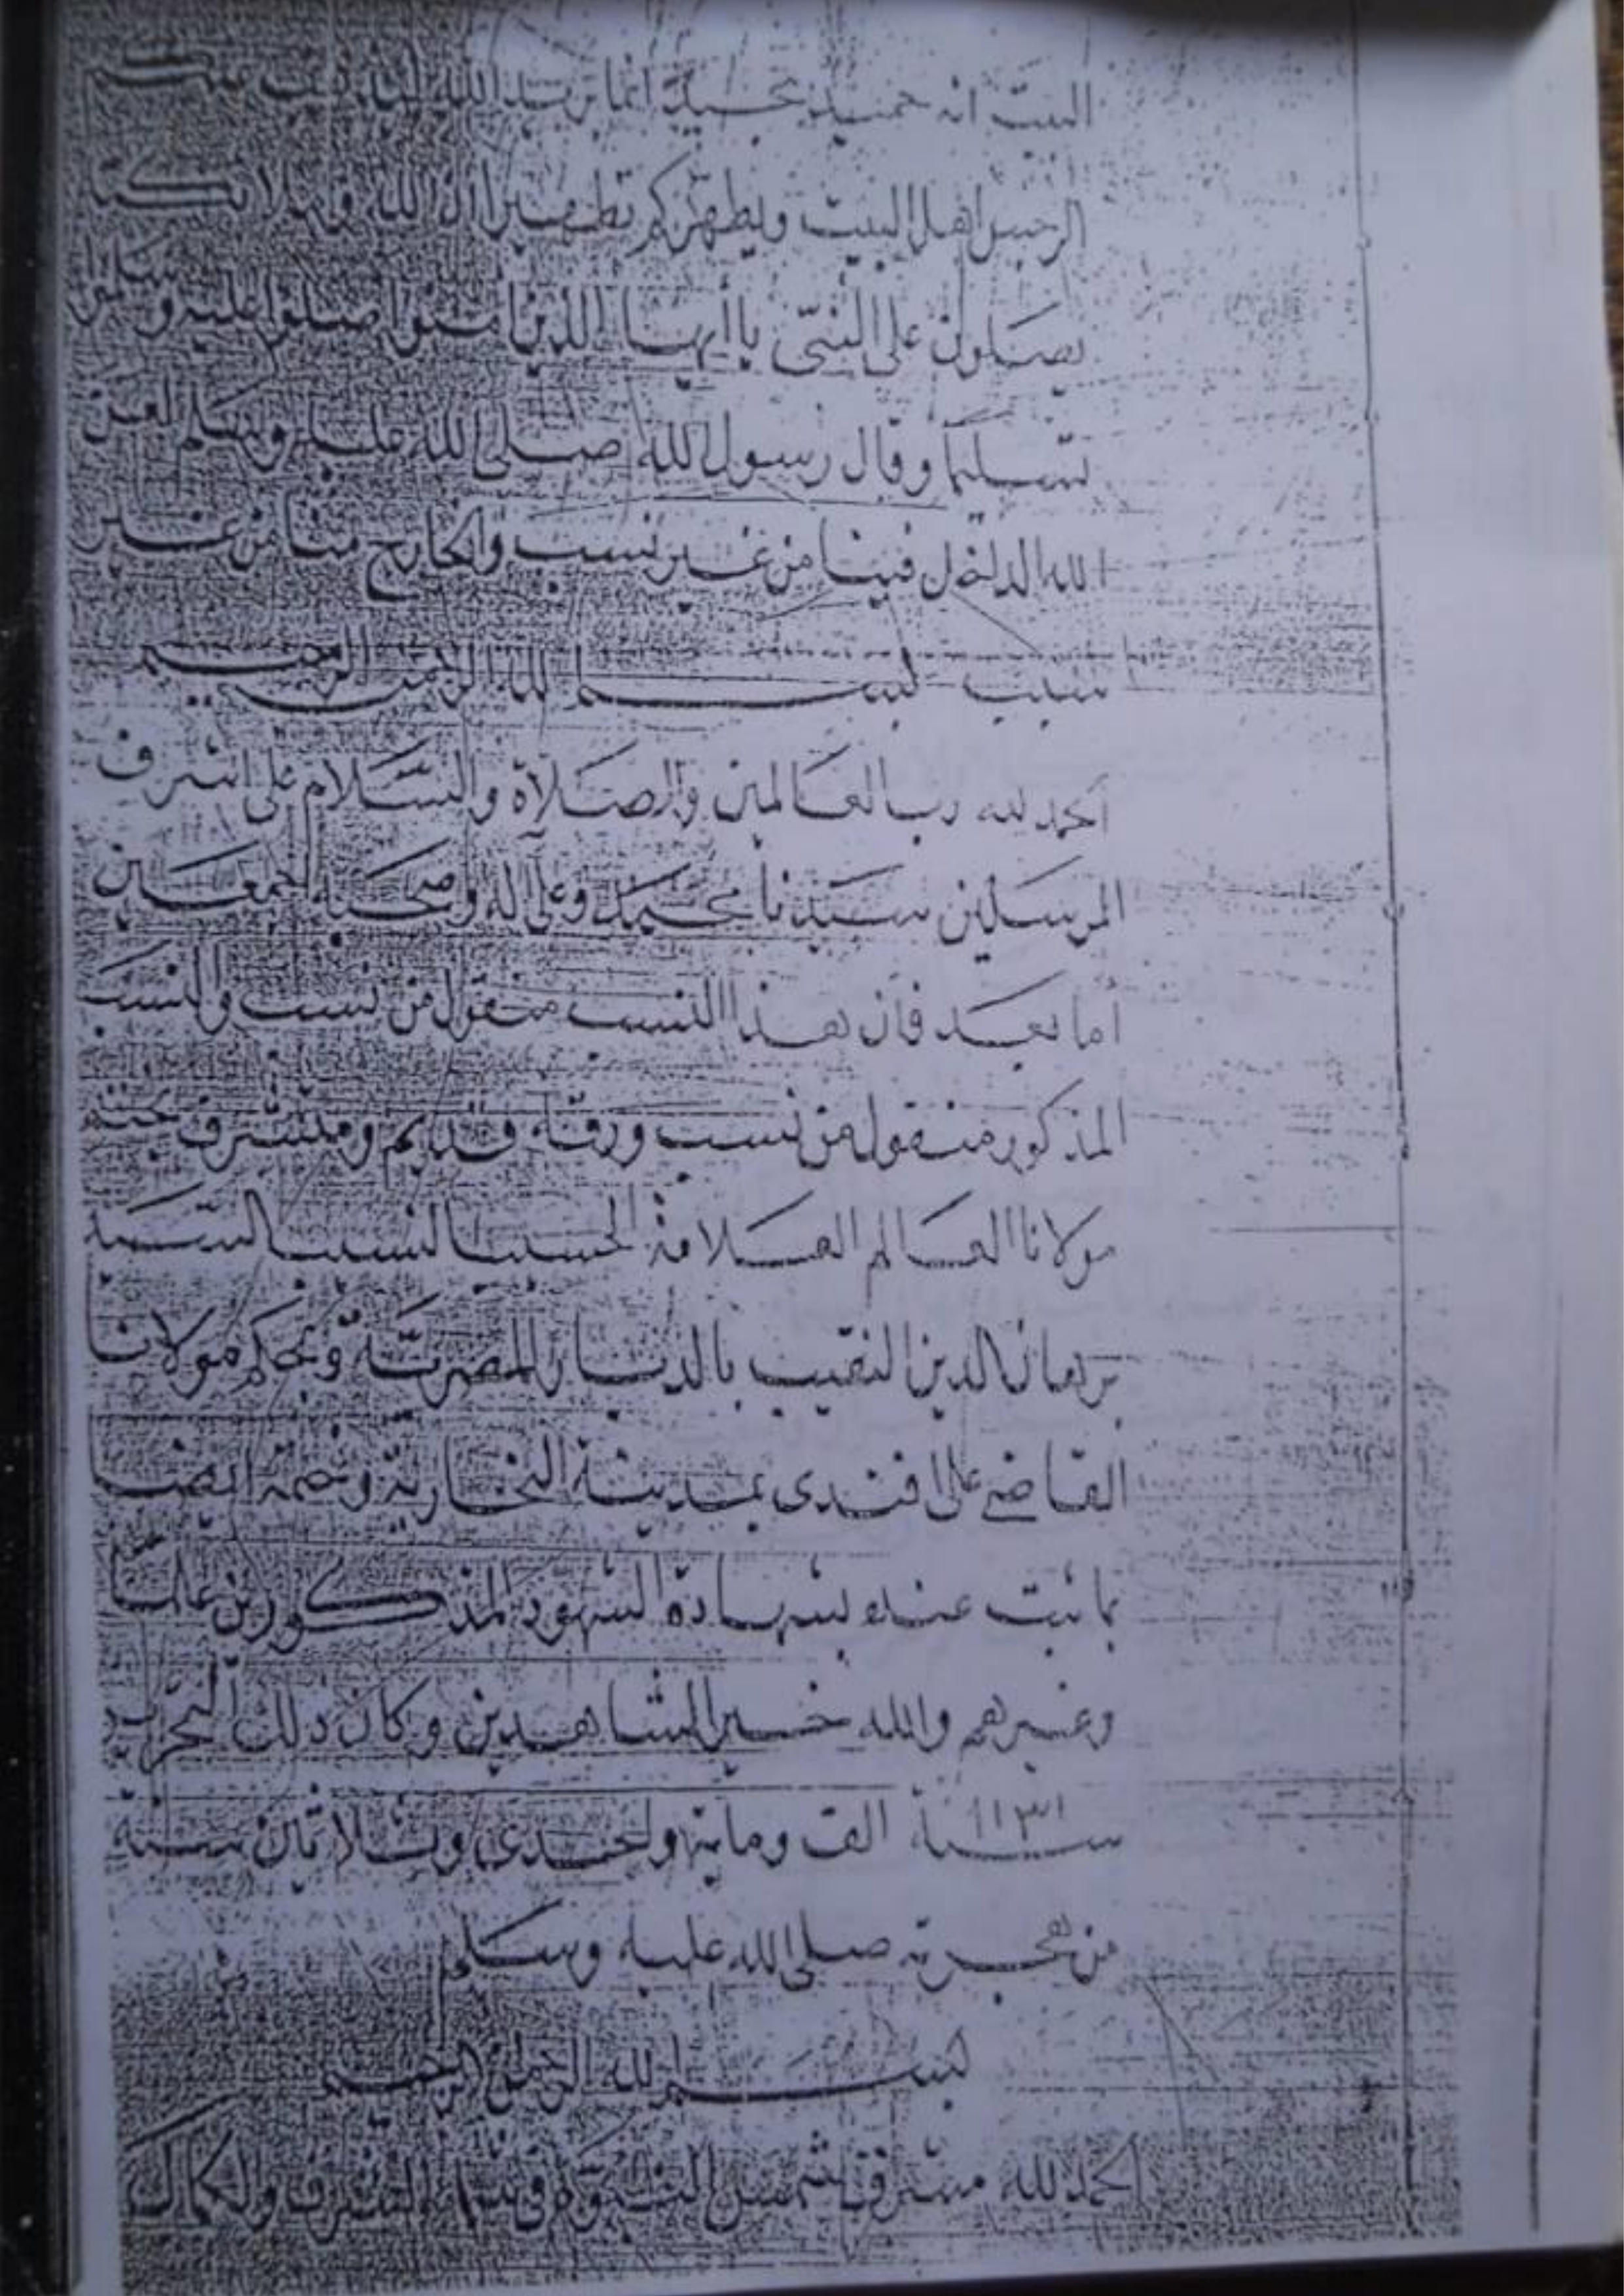 البيت انه حميد مجيد انما يريد الله ليذهب عنكم
الرجس اهل البيت ويطهركم تطهيرا ان الله وملائكته
يصلون على النبي يا أيها الذين امنوا صلوا عليه وسلموا
تسليما وقال رسول الله صلى الله عليه وسلم لعن
الله الداخل فينا من غير نسب والخارج منا من غير
سبب بسم الله الرحمن الرحيم
الحمد لله رب العالمين والصلاة والسلام على اشرف
المرسلين سيدنا محمد وعلى اله وصحبه اجمعين
أما بعد فان هذا النسب منقول من نسب والنسب
المذكور منقول من نسب ورقه قديم ومشرف بختم
مولانا العالم العلامة الحسيب النسيب السيد
برهان الدين النقيب بالديار المصرية وبحكم مولانا
القاضي على افندى بمدينة النحارية وختمه ايضا
بما ثبت عنده بشهادة الشهود المذكورين
وغيرهم والله خير الشاهدين وكان ذلك التحرير
سنة ١١٣١ الف وماية واحدى وثلاثين سنة
من هجرته صلى الله عليه وسلم
بسم الله الرحمن الرحيم
الحمد لله مشرق شمس النبوة في سماء الشرف والكمال